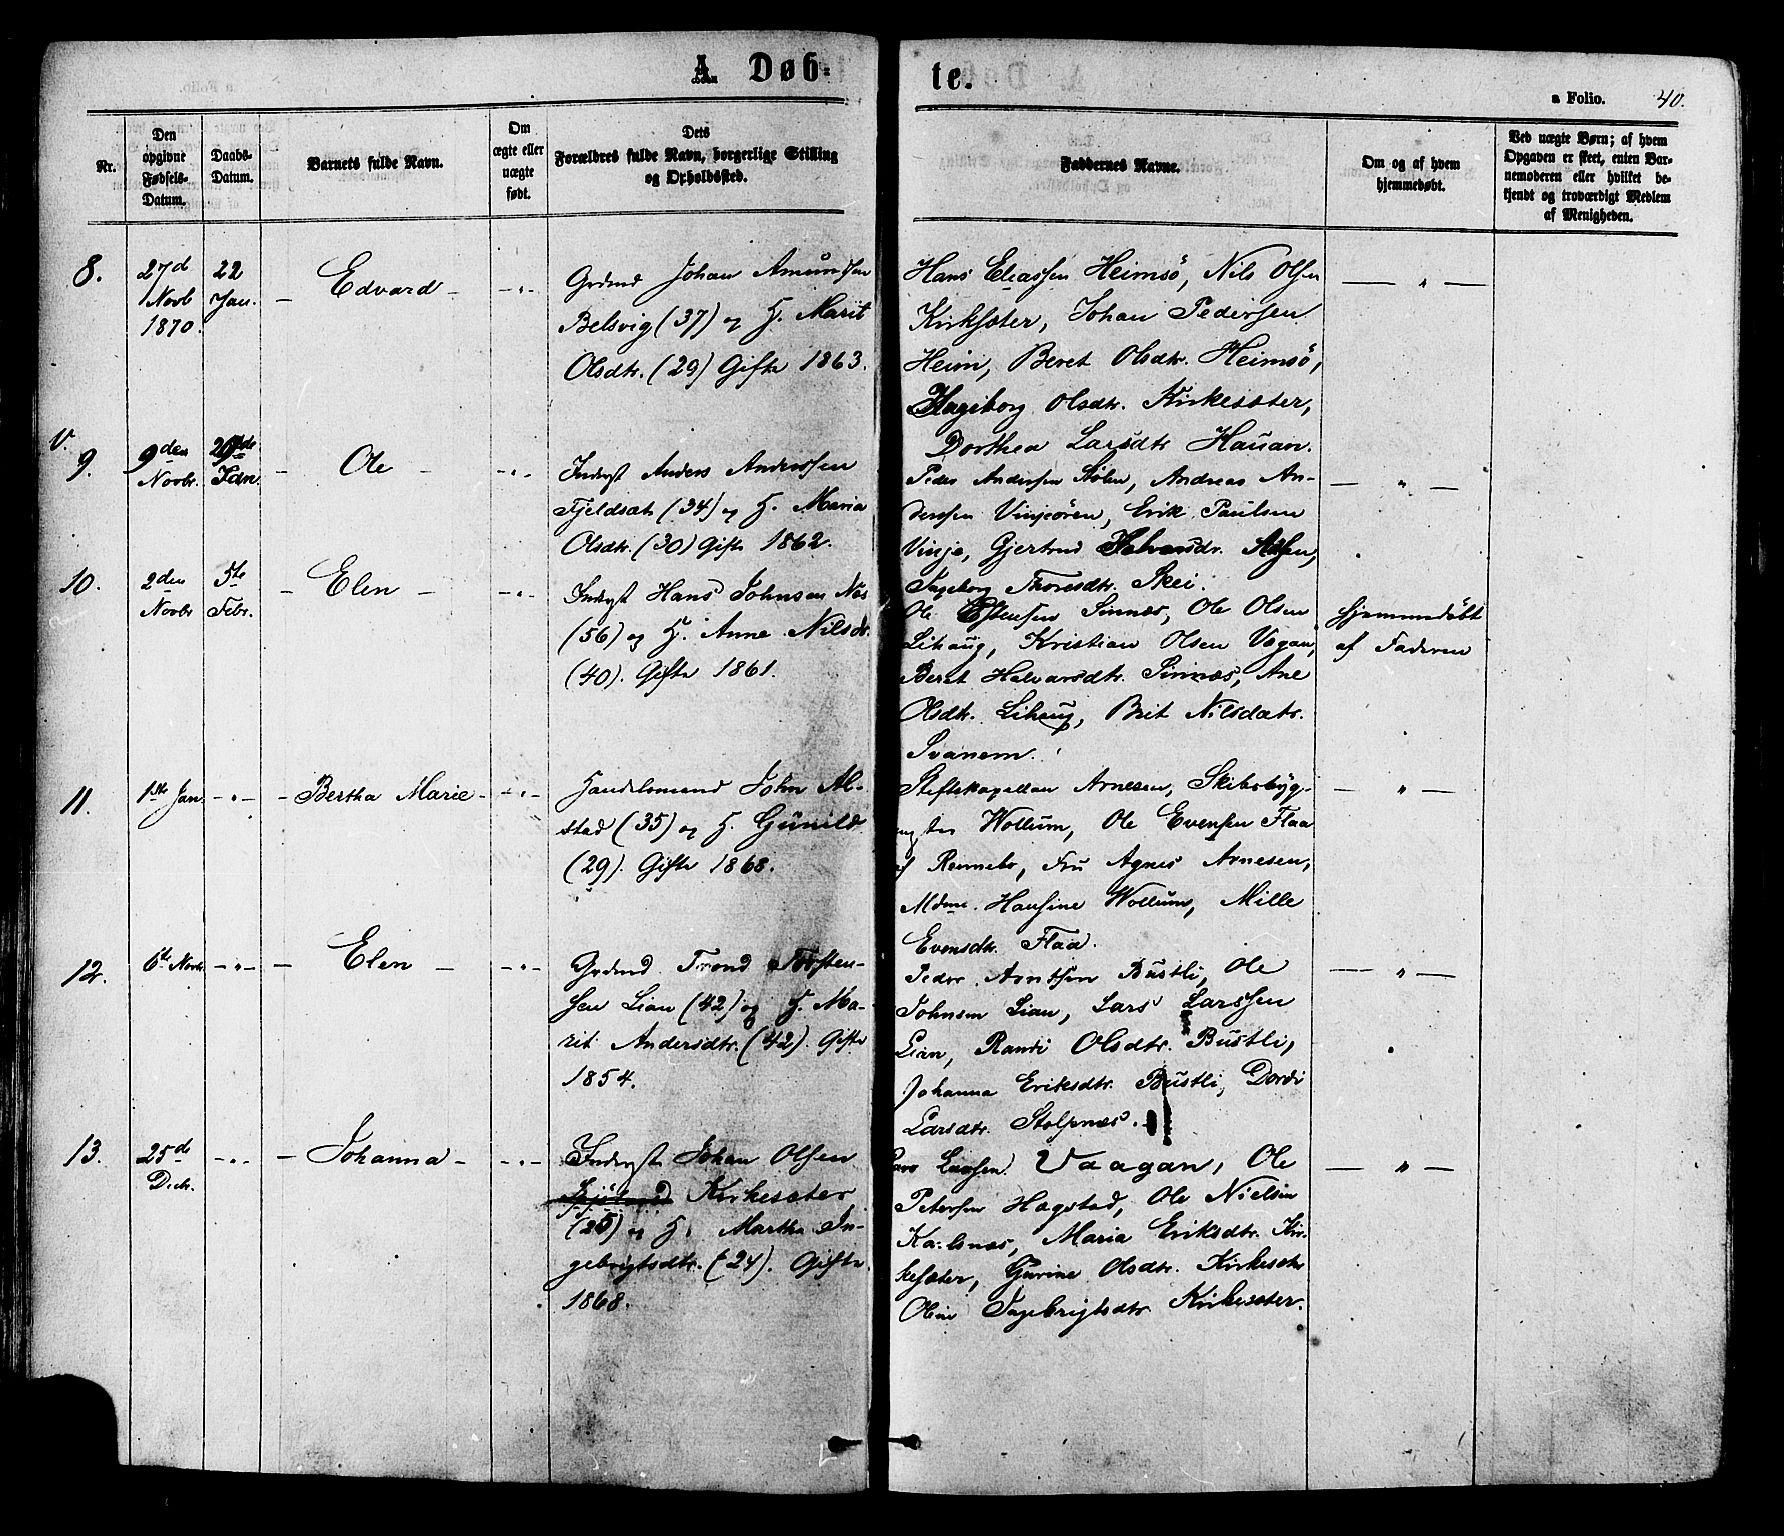 A. Døb-
te.
a Folio. 40.
Nr.
Den opgivne Fødsels-Datum.
Daabs-Datum.
Barnets fulde Navn.
Om ægte eller uægte født.
Dets Forældres fulde Navn, borgerlige Stilling og Opholdssted.
Faddernes Navne.
Om og af hvem hjemmedøbt.
Ved uægte Børn; af hvem Opgaven er skeet, enten Barnemoderen eller hvilket bekjendt og troværdigt Medlem af Menigheden.
8.
27d Novb 1870.
22 Jan.
Edvard
Grdmd Johan Amundsen
Belsvig (37) og H. Marit
Olsdtr. (29) Gifte 1863.
Hans Eliassen Heimsö, Nils Olsen
Kirksæter, Johan Pedersen
Heim, Beret Olsdtr. Heimsö,
Ingeborg Olsdtr. Kirkesæter,
Dorthea Larsdtr Hauan.
V.
9.
9den Novbr.
29de Jan.
Ole
Inderst Anders Anderssen
Fjeldsæt (34) og H. Maria
Olsdtr. (30) Gifte 1862.
Peder Anderssen Stölen, Andreas An-
derssen Vinjeören, Erik Paulsen
Vinje, Gjertrud Halvorsdr.
Ingeborg Thoresdtr. Skei.
10.
2den Novbr
5te Febr.
Elen
Inderst Hans Johnsen Næs
(56) og H. Anne Nilsdr.
(40). Gifte 1861.
Ole Estensen Sinnes, Ole Olsen
Lihaug, Kristian Olsen Vagan,
Beret Halvorsdtr. Sinnes, Ane
Olsdtr. Lihaug, Brit Nilsdatr.
Svanem.
Hjemmedöbt
af Faderen
11.
1ste Jan.
Bertha Marie
Handelsmand John Al-
stad (35) og H. Gunild
(29). Gifte 1868.
Stiftskapellan Arnesen, Skibsbyg-
ter Wollum, Ole Evensen Flaa
af Rennebo, Fru Agnes Arnesen,
Mdme. Hansine Wollum, Mille
Evensdtr. Flaa.
12.
6te Novb.
Elen
Grdmd. Trond Torsten-
sen Lian (42) og H. Ma-
rit Andersdtr. (42). Gifte
1854.
Peder Arntsen Bustli, Ole
Johnsen Lian, Lars Larssen
Lian, Randi Olsdtr. Bustli,
Johanna Eriksdtr. Bustli, Dordi
Larsdtr. Stolpnæs.
13.
25d Decbr.
Johanna
Inderst Johan Olsen
Kirkesæter
(25) og H. Martha In-
gebrigtsdtr. (24). Gifte
1868.
Lars Larssen Vaagan, Ole
Petersen Hagstad, Ole Nielsen
Karlsnæs, Maria Eriksdtr. Kir-
kesæter, Gurine Olsdtr. Kirkesæter
Oline Ingebrigtsdtr. Kirkesæter.